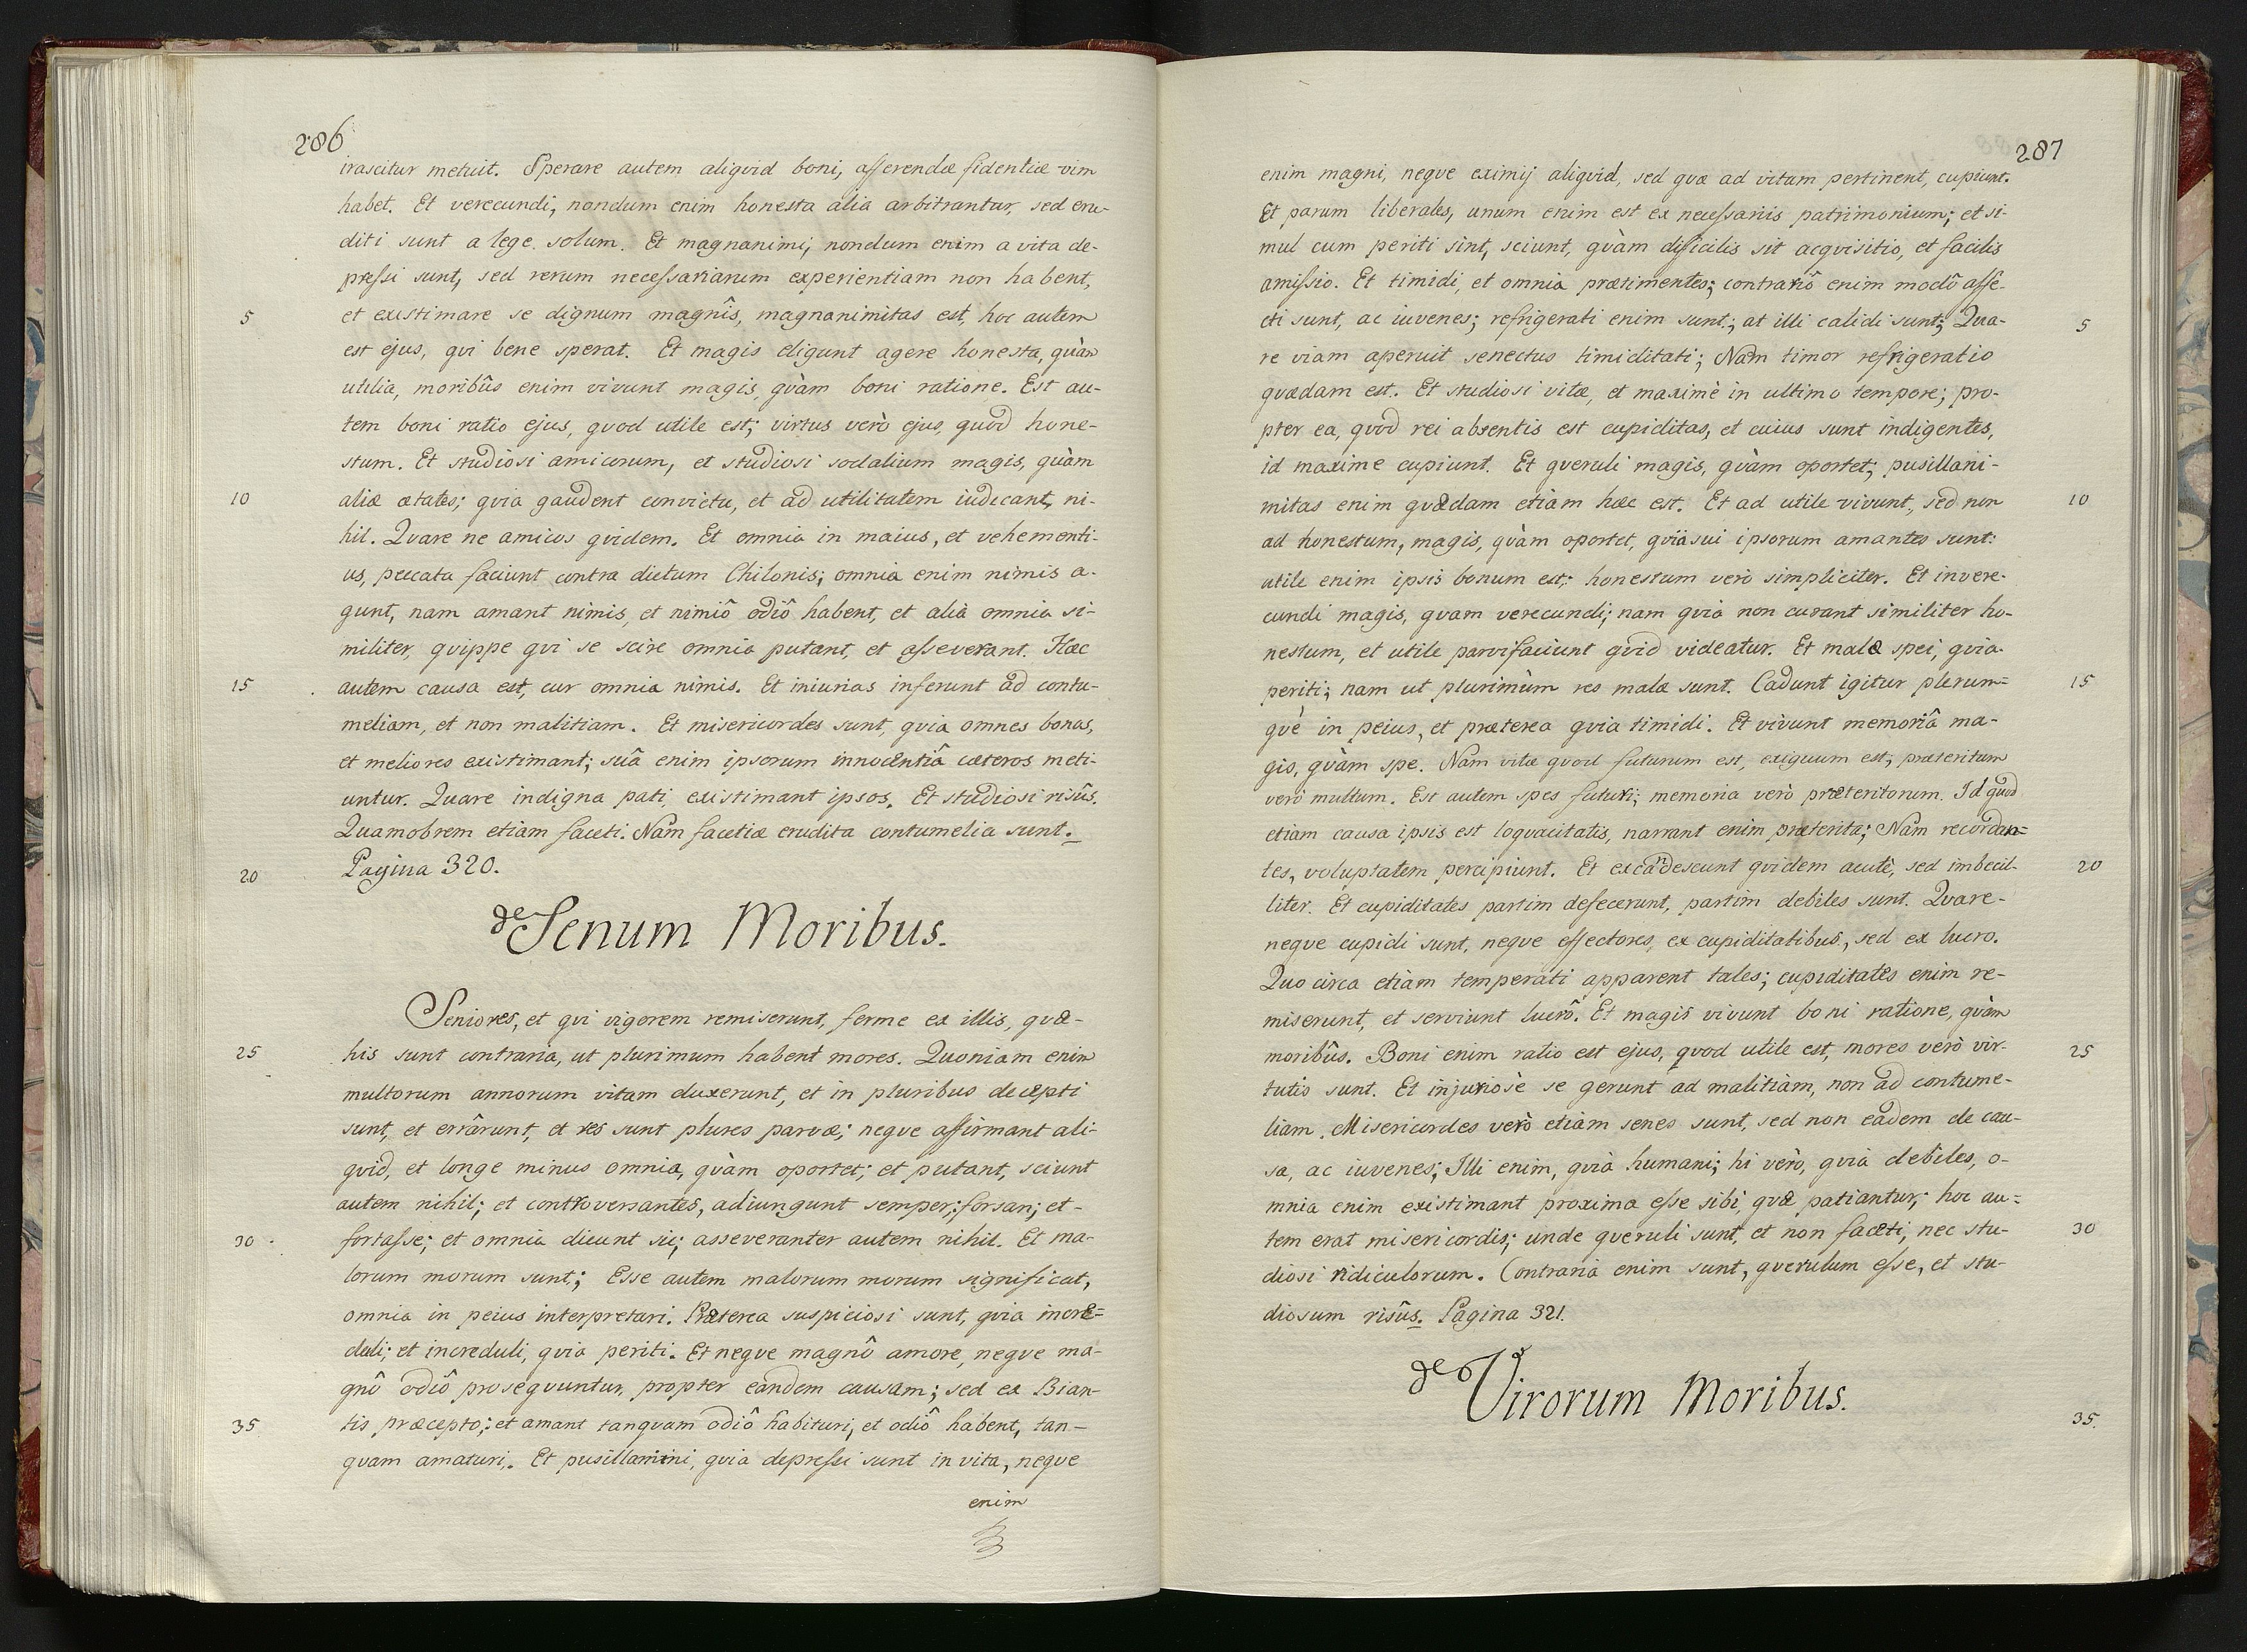 286
irascitur metuit. Sperare autem aliqvid boni, asserendæ fidentiæ vim
habet. Et verecundi, nondum enim honesta alia arbitrantur, sed eru-
diti sunt a lege solum. Et magnanimi, nondum enim a vita de-
pressi sunt, sed rerum necessariarum experientiam non habent,
5 et existimare se dignum magnîs, magnanimitas est, hoc autem
est ejus, qvi bene sperat. Et magis eligunt agere honesta, qvàm
utilia, moribûs enim vivunt magis, qvàm boni ratione. Est au-
tem boni ratio ejus, qvod utile est; virtus verò ejus, quod hone-
stum. Et studiosi amicorum, et studiosi sodalium magis, quàm
10 aliæ ætates; qvia gaudent convictu, et ad utilitatem iudicant, ni-
hil. Qvare ne amicos qvidem. Et omnia in maius, et vehementi-
us, peccata faciunt contra dictum Chilonis; omnia enim nimis a-
gunt, nam amant nimis, et nimiô odiô habent, et alia omnia si-
militer, qvippe qvi se scire omnia putant, et asseverant. Hæc
15 autem causa est, cur omnia nimis. Et iniurias inferunt ad contu-
meliam, et non malitiam. Et misericordes sunt, qvia omnes bonos,
et meliores existimant; suâ enim ipsorum innocentiâ cæteros meti-
untur. Quare indigna pati existimant ipsos. Et studiosi risûs.
Quamobrem etiam faceti. Nam facetiæ erudita contumelia sunt.
20 Pagina 320.
de Senum Moribus.
Seniores, et qvi vigorem remiserunt, ferme ex illis, qvæ-
25 his sunt contraria, ut plurimum habent mores. Quoniam enim
multorum annorum vitam duxerunt, et in pluribus decepti
sunt, et errârunt, et res sunt plures parvæ; neqve affirmant ali-
qvid, et longe minus omnia, qvàm oportet; et putant, sciunt
autem nihil; et controversantes, adiungunt semper; forsan; et-
30 fortasse; et omnia dicunt sic; asseveranter autem nihil. Et ma-
lorum morum sunt; Esse autem malorum morum significat,
omnia in peius interpretari. Præterea suspiciosi sunt, qvia incre=
duli; et increduli, qvia periti. Et neqve magnô amore, neqve ma-
gnô odiô proseqvuntur, propter eandem causam; sed ex Bian-
35 tis præcepto; et amant tanqvam odiô habituri, et odiô habent, tan-
qvam amaturi. Et pusillamini, qvia depressi sunt in vita, neqve
enim
287
enim magni, neqve eximij aliqvid, sed qvæ ad vitam pertinent, cupiunt.
Et parum liberales, unum enim est ex necessariis patrimonium; et si-
mul cum periti sint, sciunt, qvàm dificilis sit acqvisitio, et facilis
amissio. Et timidi, et omnia prætimentes; contrariô enim modô affe-
5 cti sunt, ac iuvenes; refrigerati enim sunt; at illi calidi sunt; Qua-
re viam aperuit senectus timiditati; Nam timor refrigeratio
qvædam est. Et studiosi vitæ, et maximè in ultimo tempore; pro-
pter ea, qvod rei absentis est cupiditas, et cuius sunt indigentes,
id maxime cupiunt. Et qveruli magis, qvàm oportet; pusillani-
10 mitas enim qvædam etiam hæc est. Et ad utile vivunt, sed non
ad honestum, magis, qvàm oportet, qvia sui ipsorum amantes sunt:
utile enim ipsis bonum est; honestum verò simpliciter. Et invere-
cundi magis, qvam verecundi; nam qvia non curant similiter ho-
nestum, et utile parvifaciunt qvid videatur. Et malæ spei, qvia
15 periti; nam ut plurimùm res malæ sunt. Cadunt igitur plerum=
qvè in peius, et præterea qvia timidi. Et vivunt memoriâ ma-
gis, qvàm spe. Nam vitæ qvod futurum est, exiguum est; præteritum
verò multum. Est autem spes futuri; memoria verò præteritorum. Id quod
etiam causa ipsis est loqvacitatis, narrant enim præterita; Nam recordan=
20 tes, voluptatem percipiunt. Et excandescunt qvidem acutè, sed imbecil-
liter. Et cupiditates partim defecerunt, partim debiles sunt. Qvare-
neqve cupidi sunt, neqve effectores, ex cupiditatibus, sed ex lucro.
Quo circa etiam temperati apparent tales; cupiditates enim re-
miserunt, et serviunt lucrô. Et magis vivunt boni ratione, qvàm
25 moribûs. Boni enim ratio est ejus, qvod utile est, mores verò vir-
tutis sunt. Et injuriosè se gerunt ad malitiam, non ad contume-
liam. Misericordes verò etiam senes sunt, sed non eâdem de cau-
sa, ac iuvenes; Illi enim, qvia humani; hi verò, qvia debiles, o-
mnia enim existimant proxima esse sibi, qvæ patiantur; hoc au=
30 tem erat misericordis; unde qveruli sunt, et non faceti, nec stu-
diosi ridiculorum. Contraria enim sunt, qverulum esse, et stu-
diosum risûs. Pagina 321.
de Virorum Moribus.
35.